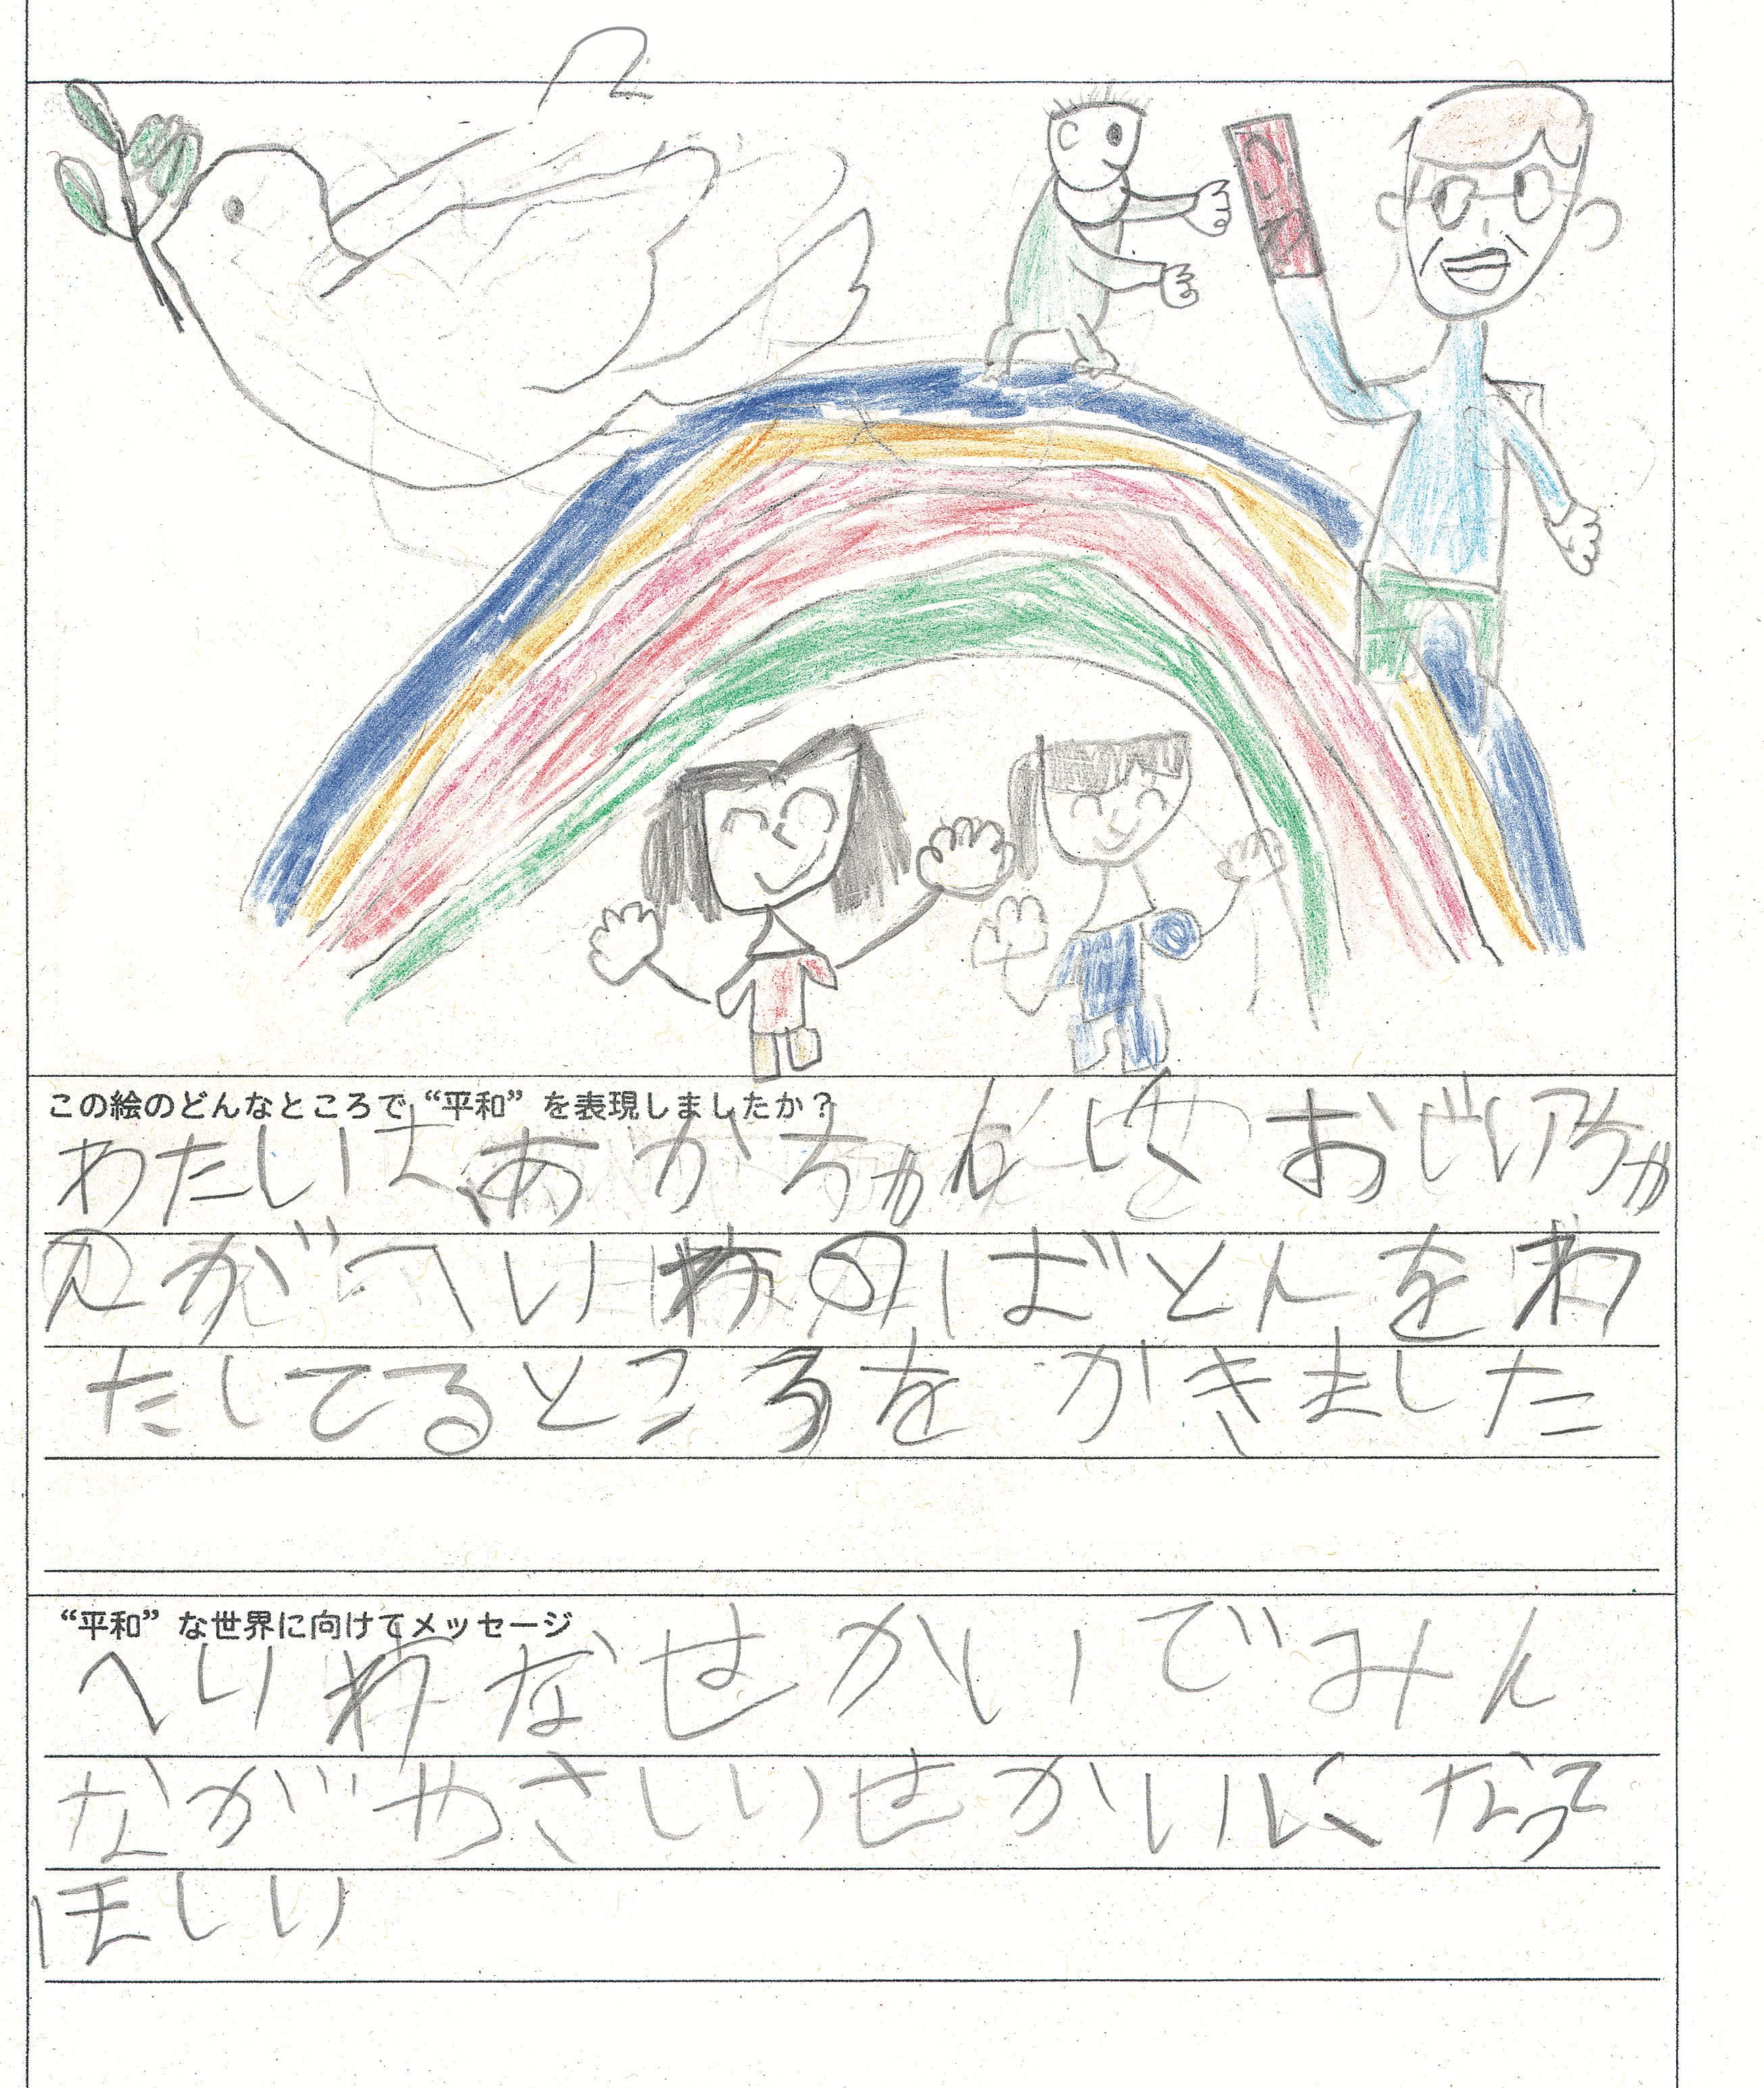 この絵のどんなところで“平和”を表現しましたか？
わたしは、あかちゃんにおじいちゃ
んがへいわのばとんをわ
たしてるところをかきました
“平和”な世界に向けてメッセージ
へいわなせかいでみん
ながやさしいせかいになって
ほしい